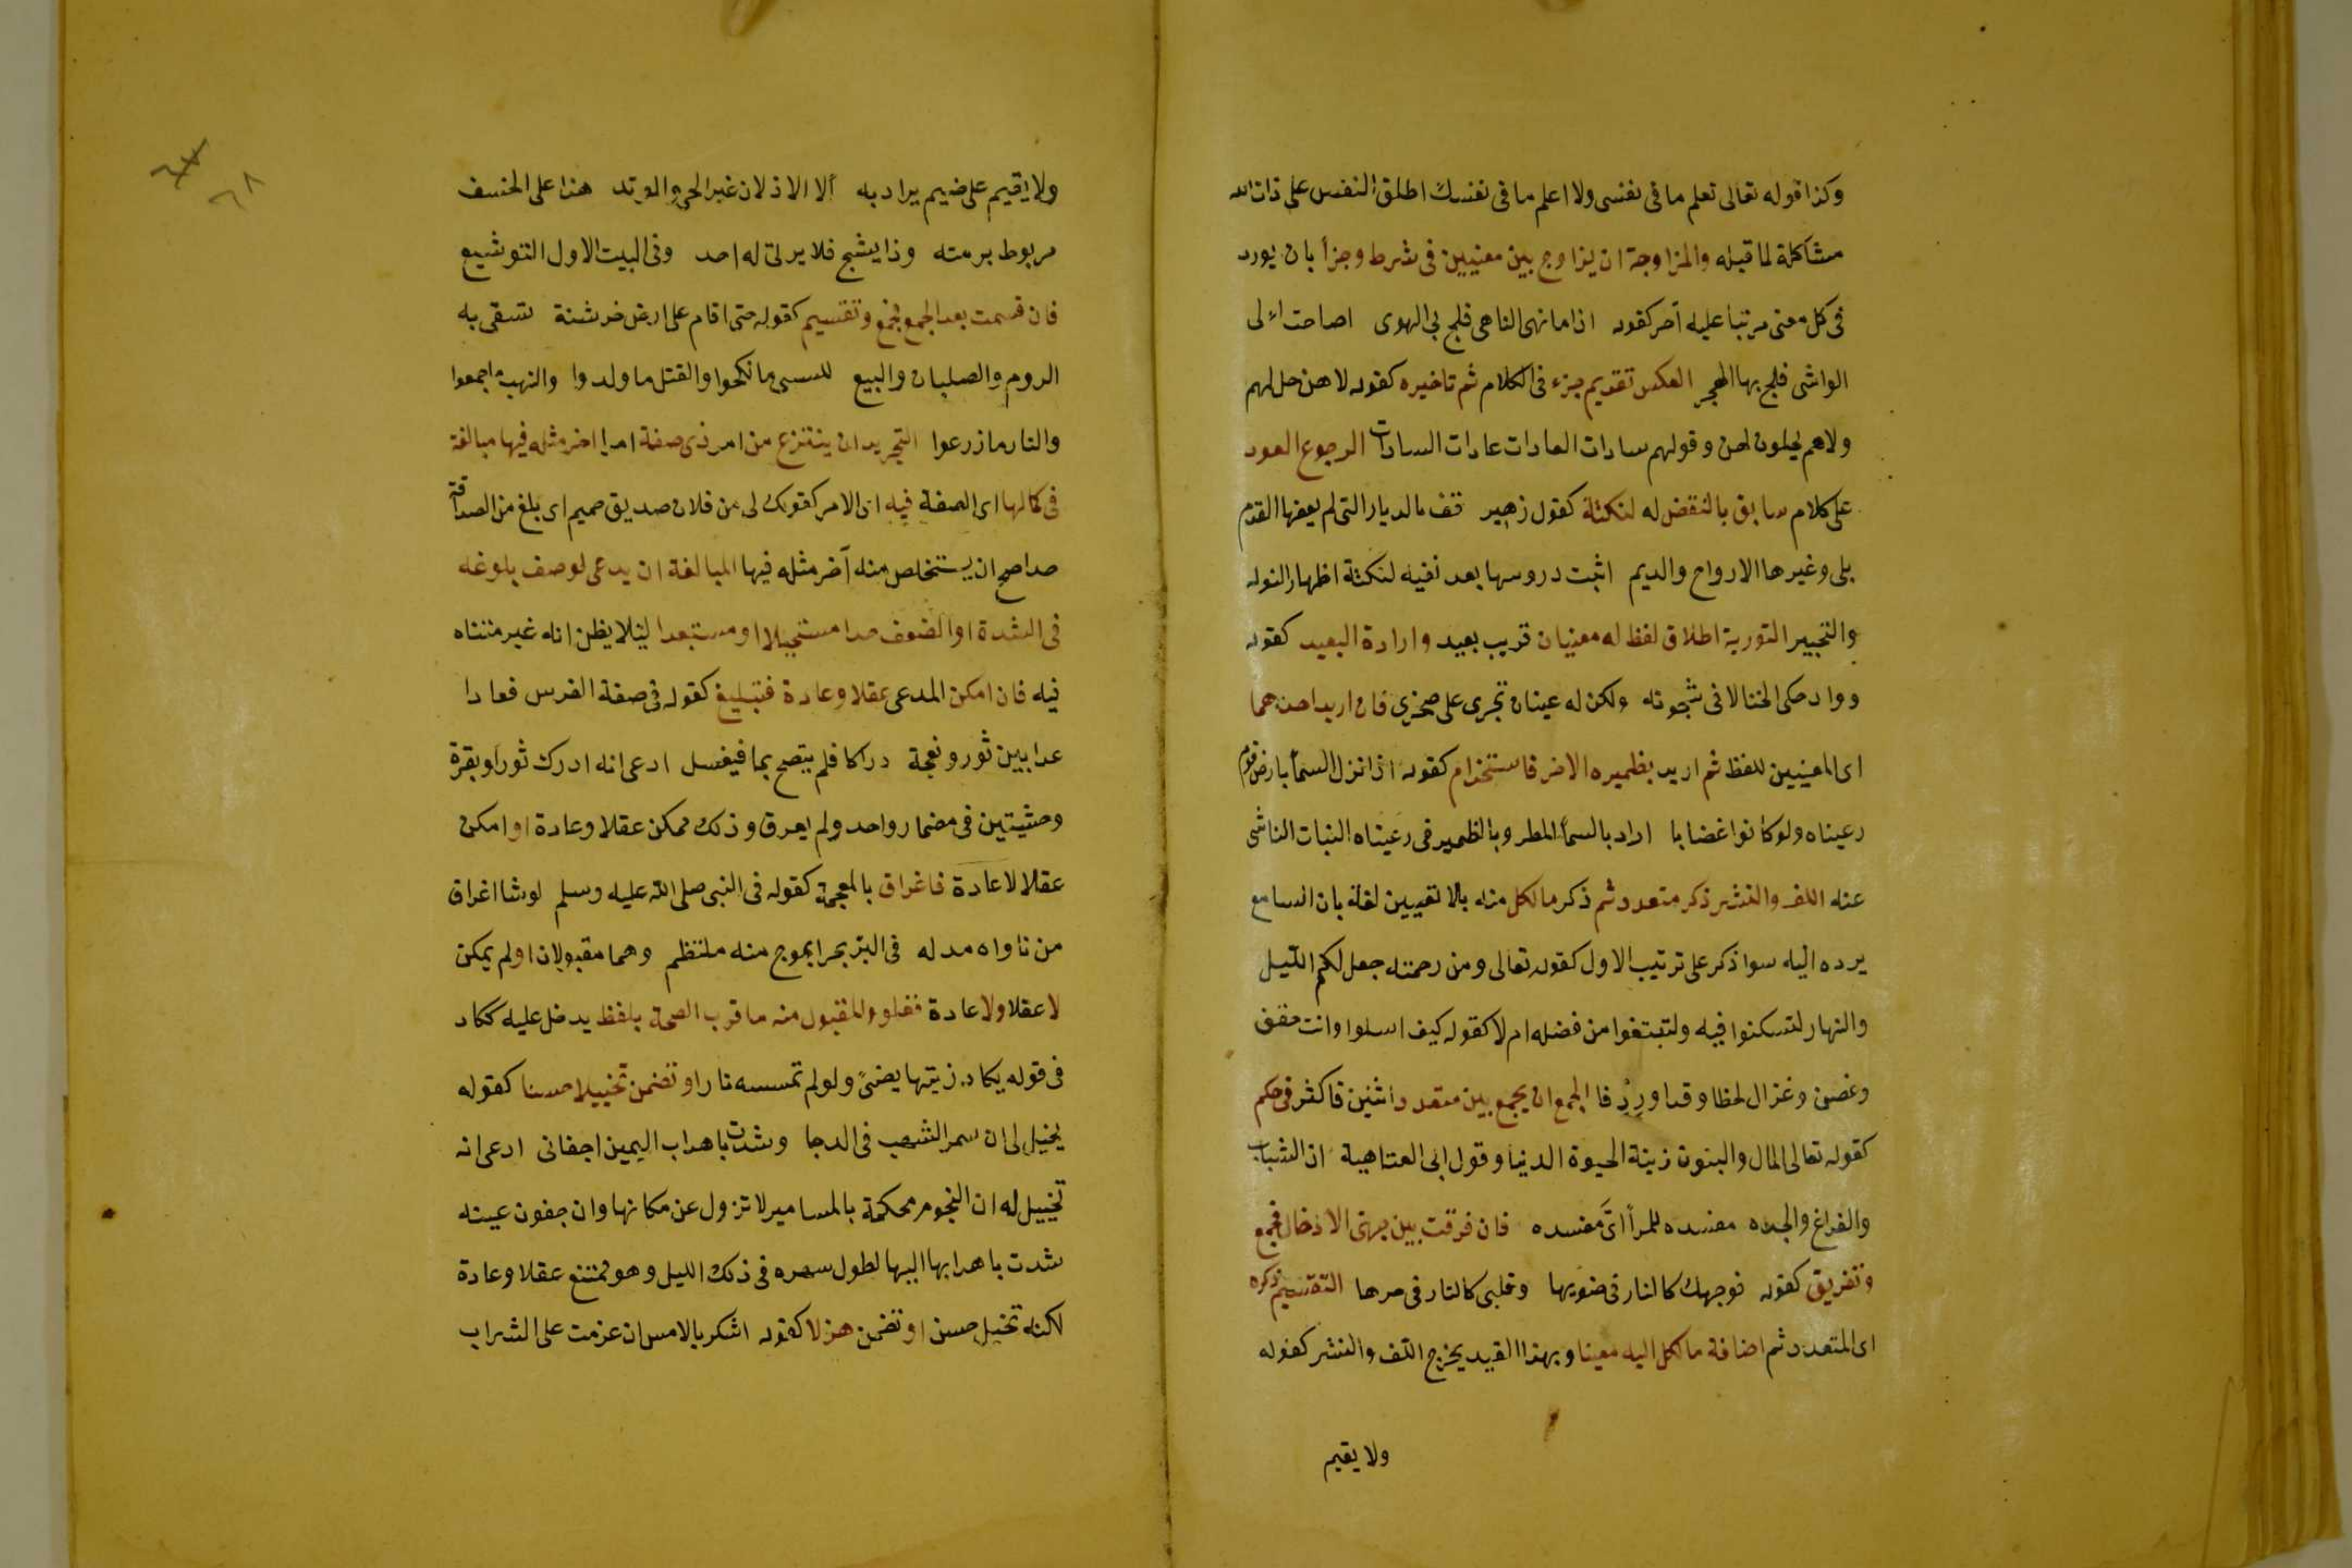 وكذا قوله تعالى تعلم ما فى نفسى ولا اعلم ما فى نفسك اطلق النفس على ذات الله
مشاكلة لما قبله والمزاوجة ان يزاوج بين معنيين فى شرط وجزأ بان يورد
فى كل معنى مرتبا عليه آخر كقوله اذا ما نهى الناهى فلج بى الهوى اصاحت الى
الواشى فلج بها الهجر العكس تقديم جزء فى الكلام ثم تاخيره كقوله لا هن حل لهم
ولا هم يحلون لهن وقولهم سادات العادات عادات السادات الرجوع العود
على كلام سابق بالنقض له لنكتة كقول زهير قف بالديار التى لم يعفها القدم
بلى وغيرها الارواح والديم اثبت دروسها بعد نفيه لنكتة اظهار التوله
والتحيير التورية اطلاق لفظ له معنيان قريب بعيد وارادة البعيد كقوله
وواد حكى الخنسا لا فى شجونه ولكن له عينان تجرى على صخرى فان اريد احدهما
اى المعنيين للفظ ثم اريد بظميره الاخر فاستخدام كقوله اذا نزل السمأ بارض قوم
رعيناه ولو كانوا غضابا اراد بالسمأ المطر وبالظمير فى رعيناه النبات الناشى
عنه اللف والنشر ذكر متعدد ثم ذكر ما لكل منه بلا تعيين لفئة بان السامع
يرده اليه سوا ذكر على ترتيب الاول كقوله تعالى ومن رحمته جعل لكم الليل
والنهار لتسكنوا فيه ولتبتغوا من فضله ام لا كقوله كيف اسلوا وانت حقف
وغصن وغزال لحظا وقدا وردفا الجمع ان يجمع بين متعدد اثنين فاكثر فى حكم
كقوله تعالى المال والبنون زينة الحيوة الدنيا وقول ابى العتاهية ان الشباب
والفراغ والجده مفسده للمرأ اىّ مفسده فان فرقت بين جهتى الادخال فجمع
وتفريق كقوله فوجهك كالنار فى ضويها وقلبى كالنار فى حرها التقسيم ذكره
اى المتعدد ثم اضافة ما لكل اليه معينا وبهذا القيد يخرج اللف والنشر كقوله
ولا يقيم
٦٨
ولا يقيم على ضيم يراد به الا الاذلان غير الحى والوتد هذا على الخسف
مربوط برمته وذا يشج فلا يرثى له احد وفى البيت الاول التوشيع
فان قسمت بعد الجمع فجمع وتقسيم كقوله حتى اقام على ارض خرشنة تشقى به
الروم والصلبان والبيع للسبى ما نكحوا والقتل ما ولدوا والنهب ما جمعوا
والنار ما زرعوا التجريد ان ينتزع من امر ذى صفة امرا اخر مثله فيها مبالغة
فى كمالها اى الصفة فيه اى الامر كقولك لى من فلان صديق حميم اى بلغ من الصداقة
حدا صح ان يستخلص منه آخر مثله فيها المبالغة ان يدعى لوصف بلوغه
فى الشدة او الضعف حدا مستحيلا او مستبعدا ليلا يظن انه غير متناه
فيه فان امكن المدعى عقلا وعادة فتبليغ كقوله فى صفة الفرس فعادا
عدا بين ثور ونعجة دراكا فلم يتضح بما فيغسل ادعى انه ادرك ثورا وبقرة
وحشيتين فى مضمار واحد ولم يعرق وذلك ممكن عقلا وعادة او امكن
عقلا لا عادة فاغراق بالمعجمة كقوله فى النبى صلى الله عليه وسلم لو شا اغراق
من ناواه مد له فى البر بحرا بموج منه ملتطم وهما مقبولان او لم يمكن
لا عقلا ولا عادة فغلو والمقبول منه ما قرب الصحة بلفظ يدخل عليه ككاد
فى قوله يكاد زيتها يضئ ولو لم تمسسه نار او تضمن تخييلا حسنا كقوله
يخيل لى ان سمر الشهب فى الدجا وشدت باهداب اليمين اجفانى ادعى انه
تخييل له ان النجوم محكمة بالمسامير لا تزول عن مكانها وان جفون عينه
شدت باهدابها اليها لطول سهره فى ذلك الليل وهو ممتنع عقلا وعادة
لكنه تخيل حسن او تضمن هزلا كقوله اسكر بالامس ان عزمت على الشراب